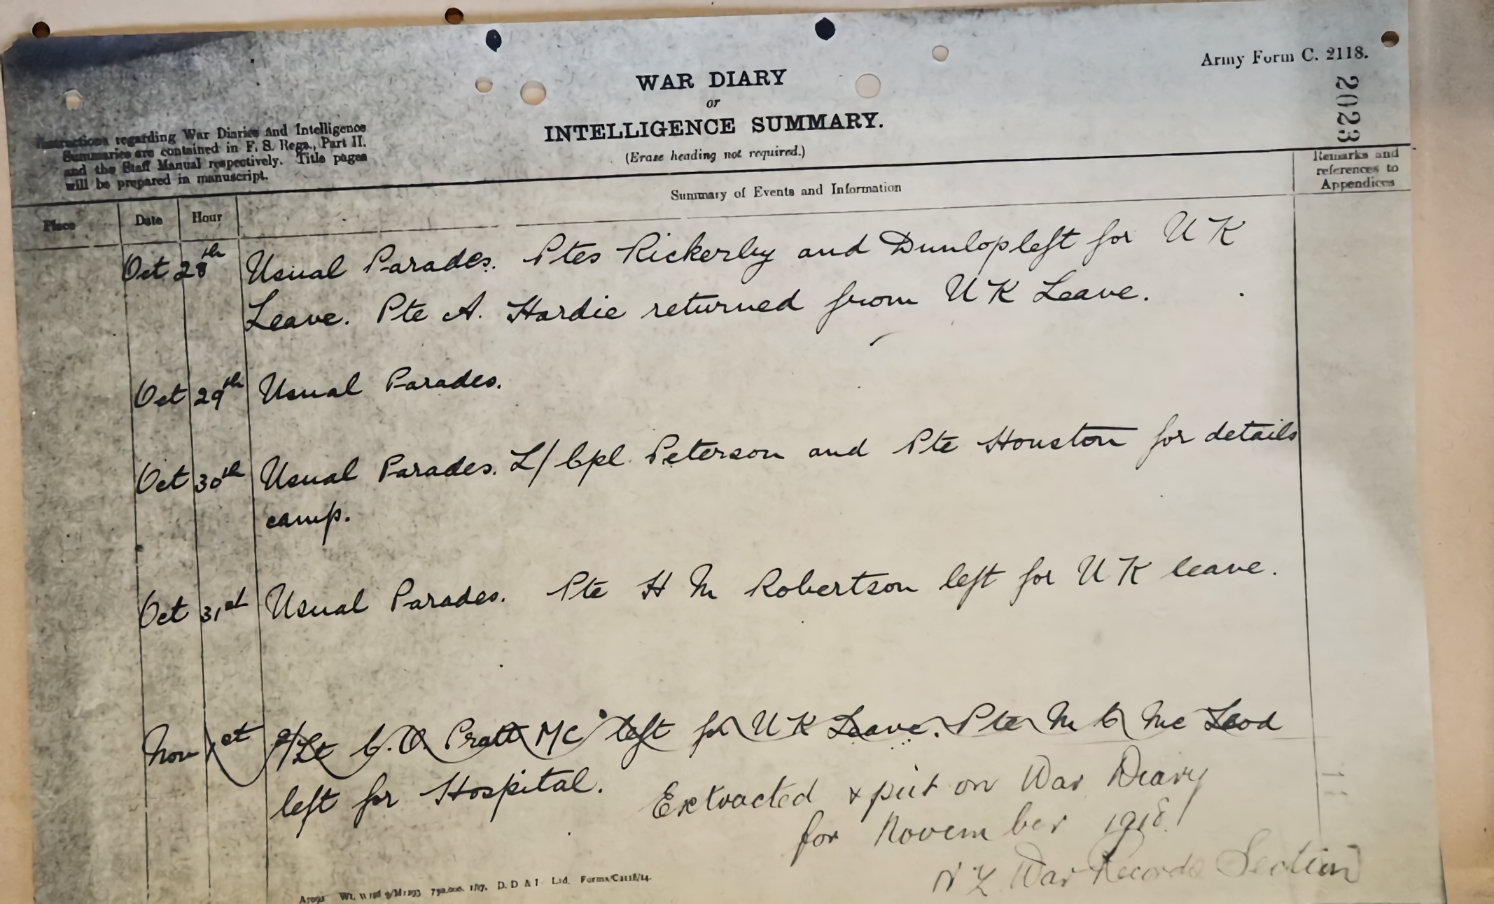 Army Form C. 2118.
2023
WAR DIARY
or
INTELLIGENCE SUMMARY.
(Erase heading not required.)
Instructions regarding War Diaries and Intelligence
Summaries are contained in F. S. Regs., Part II.
and the Staff Manual respectively. Title pages
will be prepared in manuscript.
Place Date Hour Summary of Events and Information
Remarks and
references to
Appendices
Oct 28th Usual Parades. Ptes Rickerby and Dunlop left for U K
Leave. Pte A. Hardie returned from U K Leave.
Oct 29th Usual Parades.
Oct 30th Usual Parades. L/Cpl Peterson and Pte Houston for details
camp.
Oct 31st Usual Parades. Pte H M Robertson left for U K leave.
Nov 1st 2/Lt C. O Pratt MC left for U K Leave. Pte M C Mc Leod
left for Hospital.
Extracted & put on War Diary
for November 1918
N Z War Records Section
D. D & I Ltd. Forms/C2118/14.